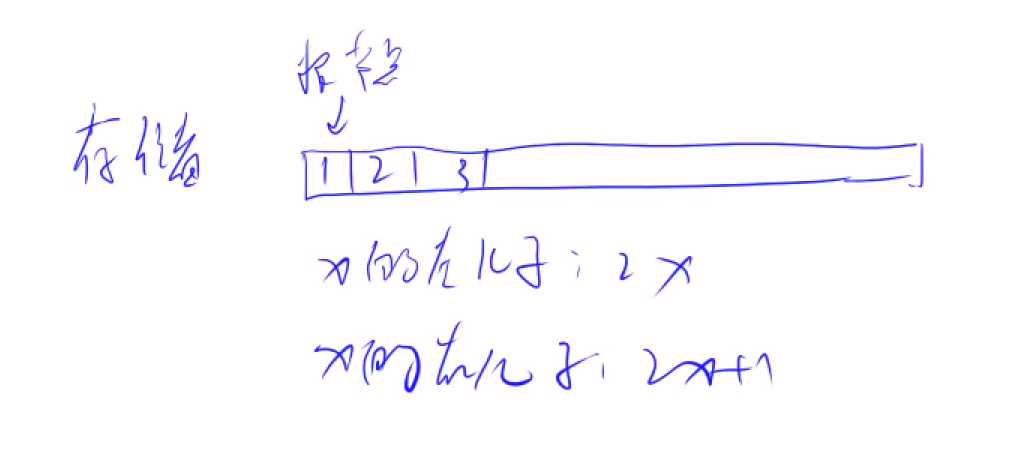 根节点
存储
1 2 3
x的左儿子:2x
x的右儿子:2x+1